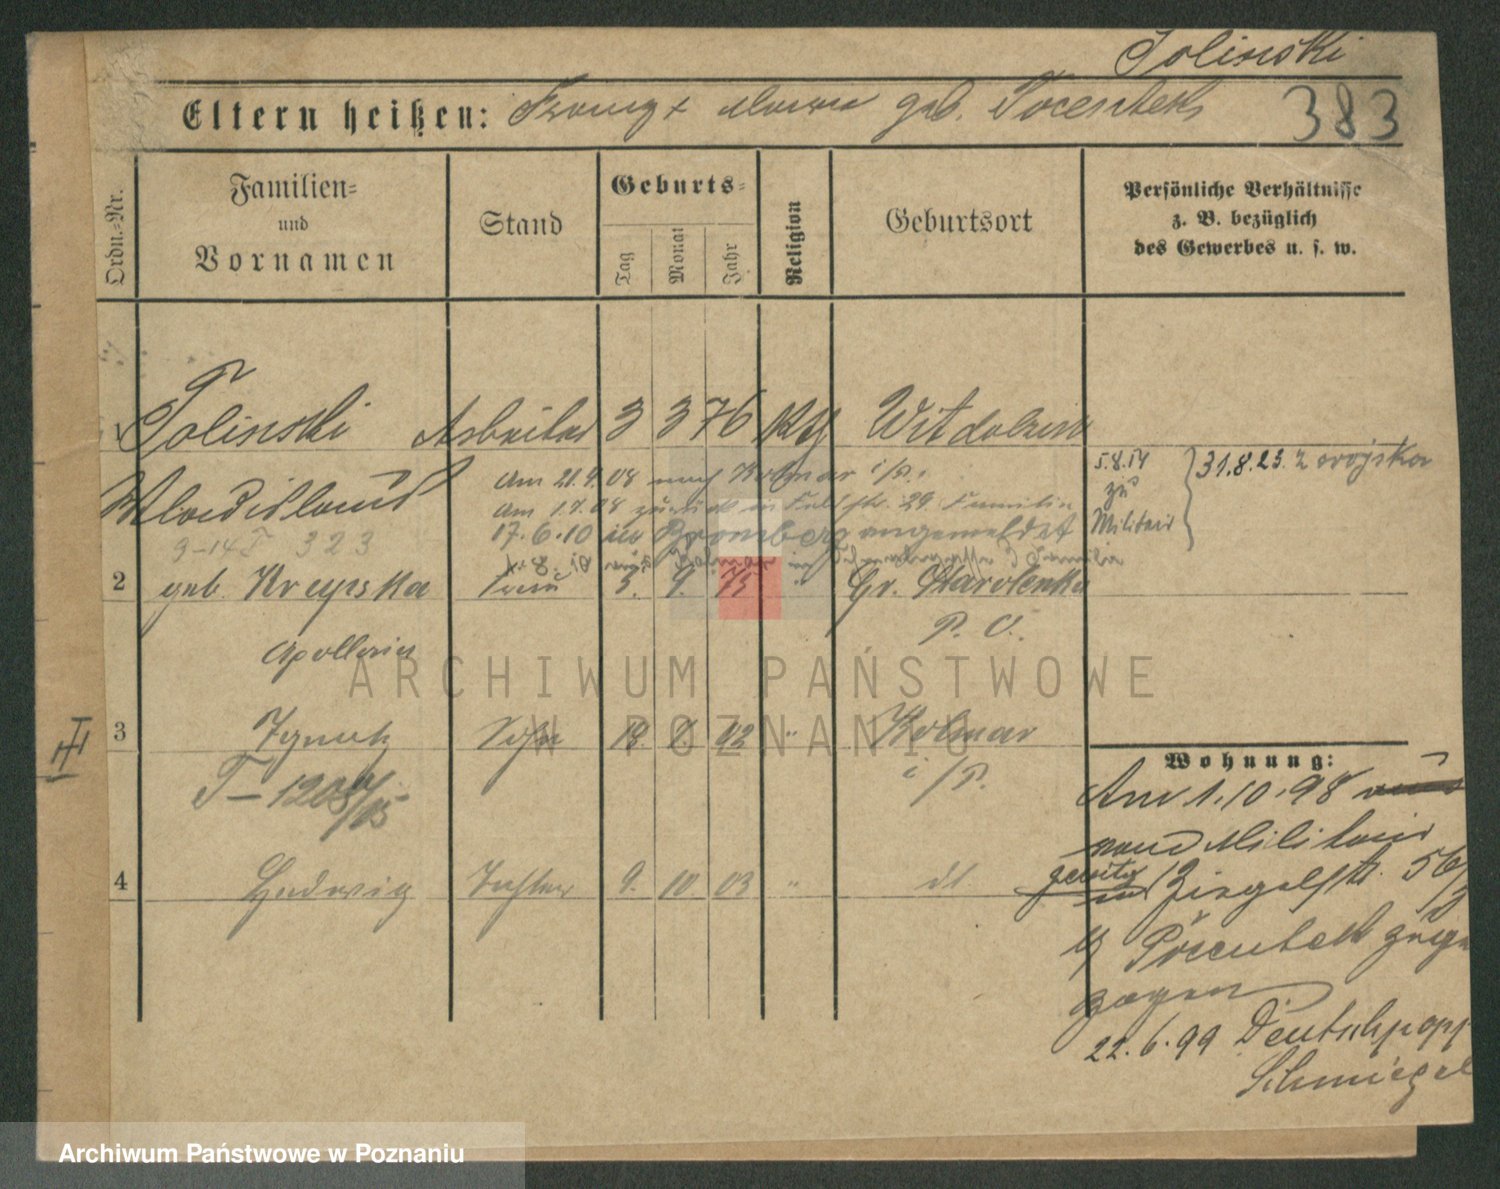 Tolinski
Eltern heißen: Franz + Maria geb. Pocentek
383
Ordn.-Nr.
Familien-
und
Vornamen
Stand
Geburts-
Tag
Monat
Jahr
Religion
Geburtsort
Persönliche Verhältnisse
z. B. bezüglich
des Gewerbes u. s. w.
1 Tolinski Arbeiter 3 3 76 Witdolzin
Wladislaus
Am 21.4.08 nach Kolmar i/P.
Am 1.7.08 zurück in 29 Familie
17.6.10 in Bromberg angemeldet
5.8.14
zu
Militär
31.8.23. z wojska
9-14 T 323
2 geb. Krepska Frau 3. 9. 75 " Gr. Starolenka
P. O.
Apollonia
3 Ignatz Sohn 18. 8. 02 " Kolmar
i/P.
T-1208/15
4 Hedwig Tochter 9. 10 03 " dt
III
Wohnung:
Am 1.10.98
vom Militair
Ziegelstr. 56/
b/ Pocentek zuge
zogen
22.6.99 Deutschpopp
Schmiegel
ARCHIWUM PAŃSTWOWE
W POZNANIU
Archiwum Państwowe w Poznaniu